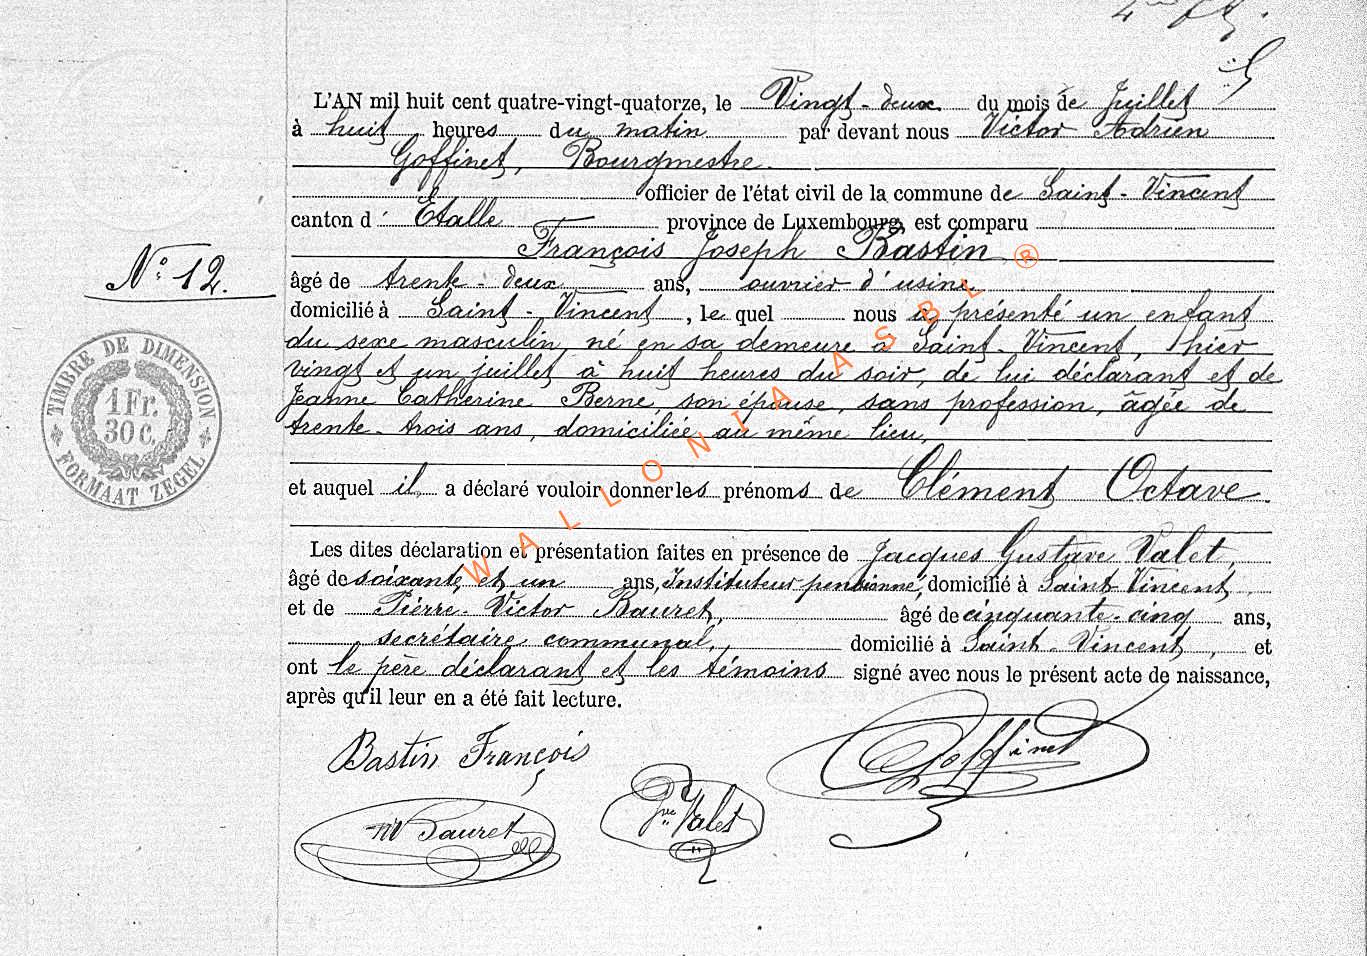 L'AN mil huit cent quatre-vingt-quatorze, le Vingt-deux du mois de Juillet
à huit heures du matin par devant nous Victor Adrien
Goffinet, Bourgmestre.
officier de l'état civil de la commune de Saint-Vincent
canton d'Étalle province de Luxembourg, est comparu
François Joseph Bastin
N° 12.
âgé de trente-deux ans, ouvrier d'usine
domicilié à Saint-Vincent, le quel nous a présenté un enfant
du sexe masculin, né en sa demeure à Saint-Vincent, hier
vingt et un juillet à huit heures du soir, de lui déclarant et de
Jeanne Catherine Berne, son épouse, sans profession, âgée de
trente-trois ans, domiciliée au même lieu,
et auquel il a déclaré vouloir donner les prénoms de Clément Octave
TIMBRE DE DIMENSION
1 Fr.
30 C.
FORMAAT ZEGEL
Les dites déclaration et présentation faites en présence de Jacques Gustave Valet,
âgé de soixante et un ans, Instituteur pensionné, domicilié à Saint-Vincent
et de Pierre-Victor Bauret, âgé de cinquante-cinq ans,
secrétaire communal, domicilié à Saint-Vincent, et
ont le père déclarant et les témoins signé avec nous le présent acte de naissance,
après qu'il leur en a été fait lecture.
Bastin François
Goffinet
Bauret
Valet
WALLONIA ASBL ®